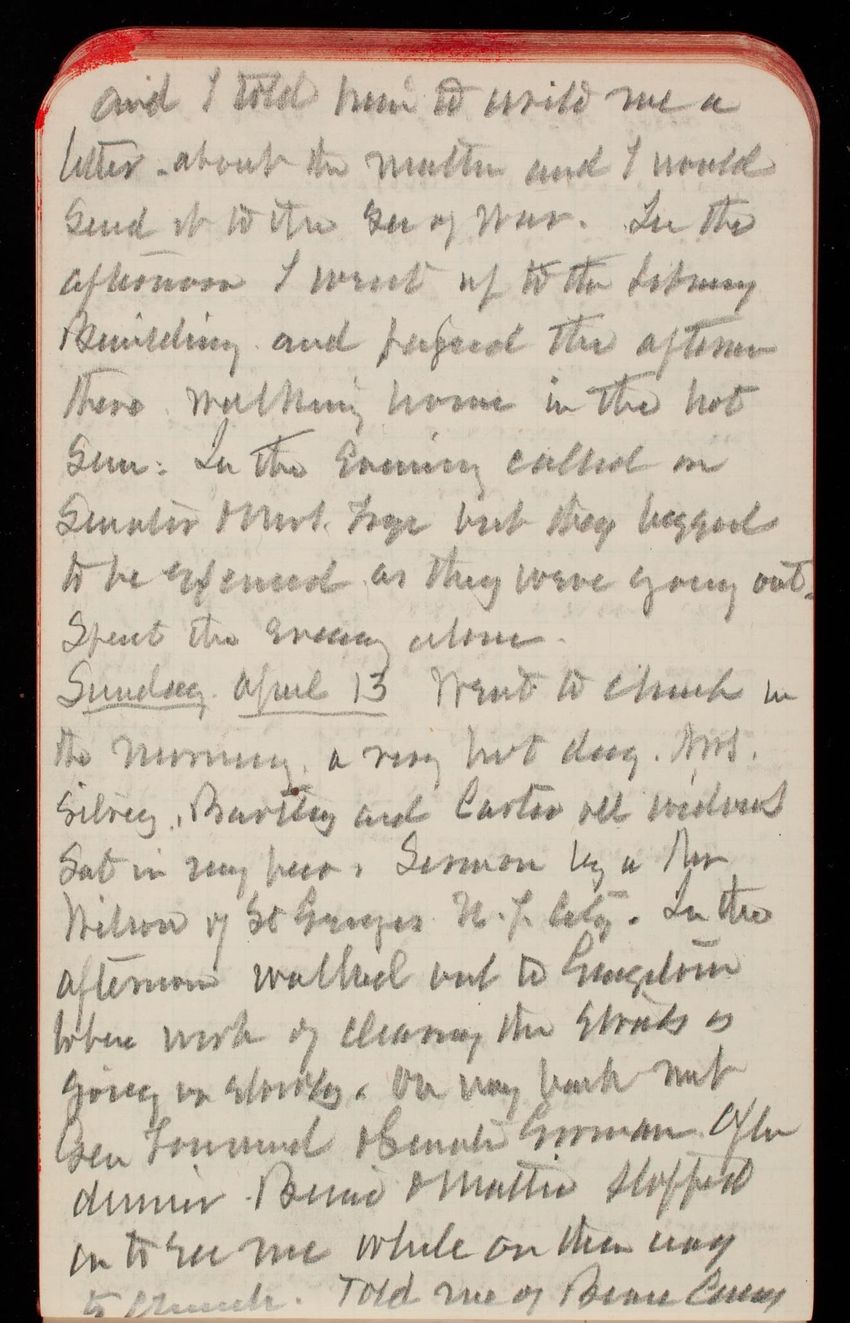 and I told him to write me a
letter about the matter and I would
send it to the Sec of War. In the
afternoon I went up to the Library
Building and passed the afternoon
there walking home in the hot
sun. In the evening called on
Senator & Mrs. Frye but they begged
to be excused as they were going out.
Spent the evening alone.
Sunday April 13 Went to church in
the morning, a very hot day. Mrs.
Bartley and Carter all widows
sat in my pew. Sermon by a Mr
Wilson of St Georges N.Y. City. In the
afternoon walked out to
where work of clearing the streets is
going on slowly. On way back met
Gen Townsend & Senator Gorman. After
dinner Bernie & Mattie stopped
in to see me while on their way
to church. Told me of